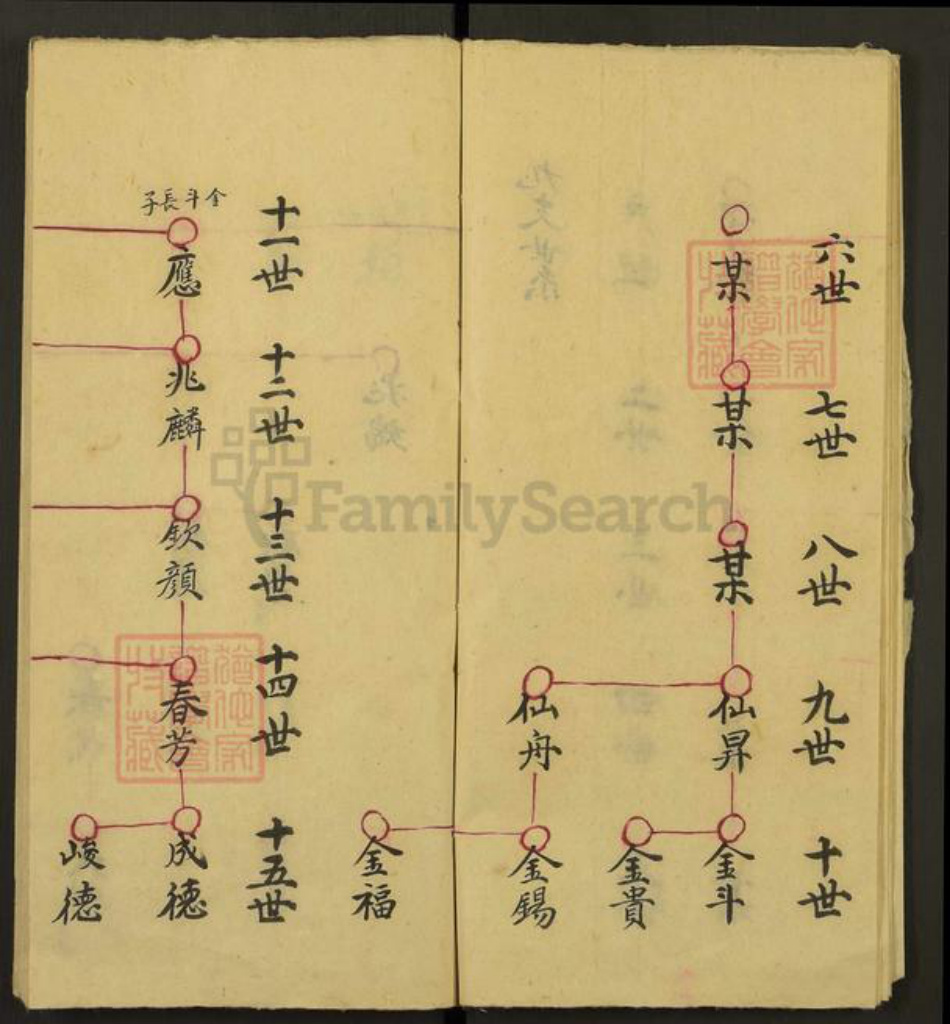 六世
七世
八世
九世
十世
某
某
某
仙昇
金斗
金貴
仙舟
金錫
金福
十一世
十二世
十三世
十四世
十五世
金斗長子
應
兆麟
欽顏
春芳
成德
峻德
FamilySearch